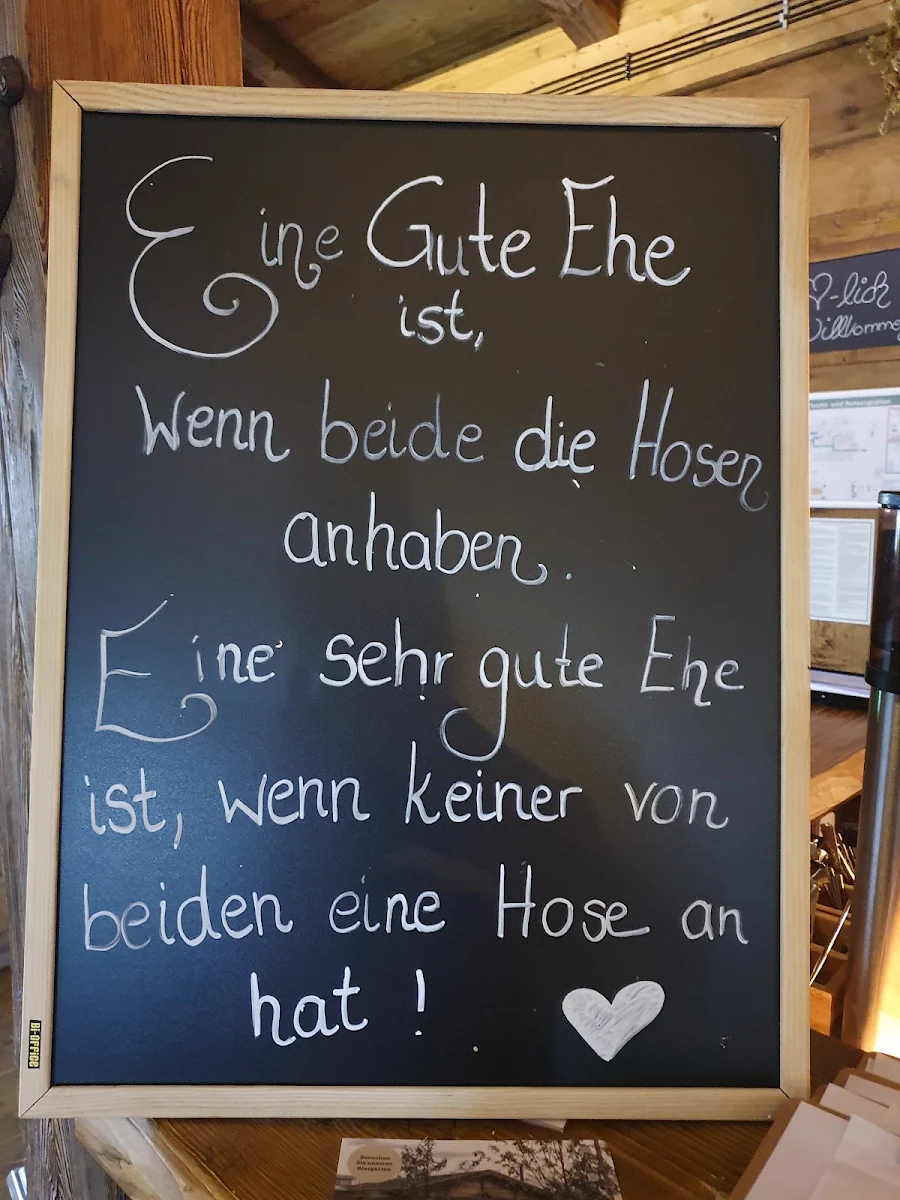 Eine Gute Ehe
ist,
Wenn beide die Hosen
anhaben.
Eine sehr gute Ehe
ist, wenn keiner von
beiden eine Hose an
hat !
-lich
Willkomme
BI-OFFICE
Besuchen
Sie unseren
Biergarten